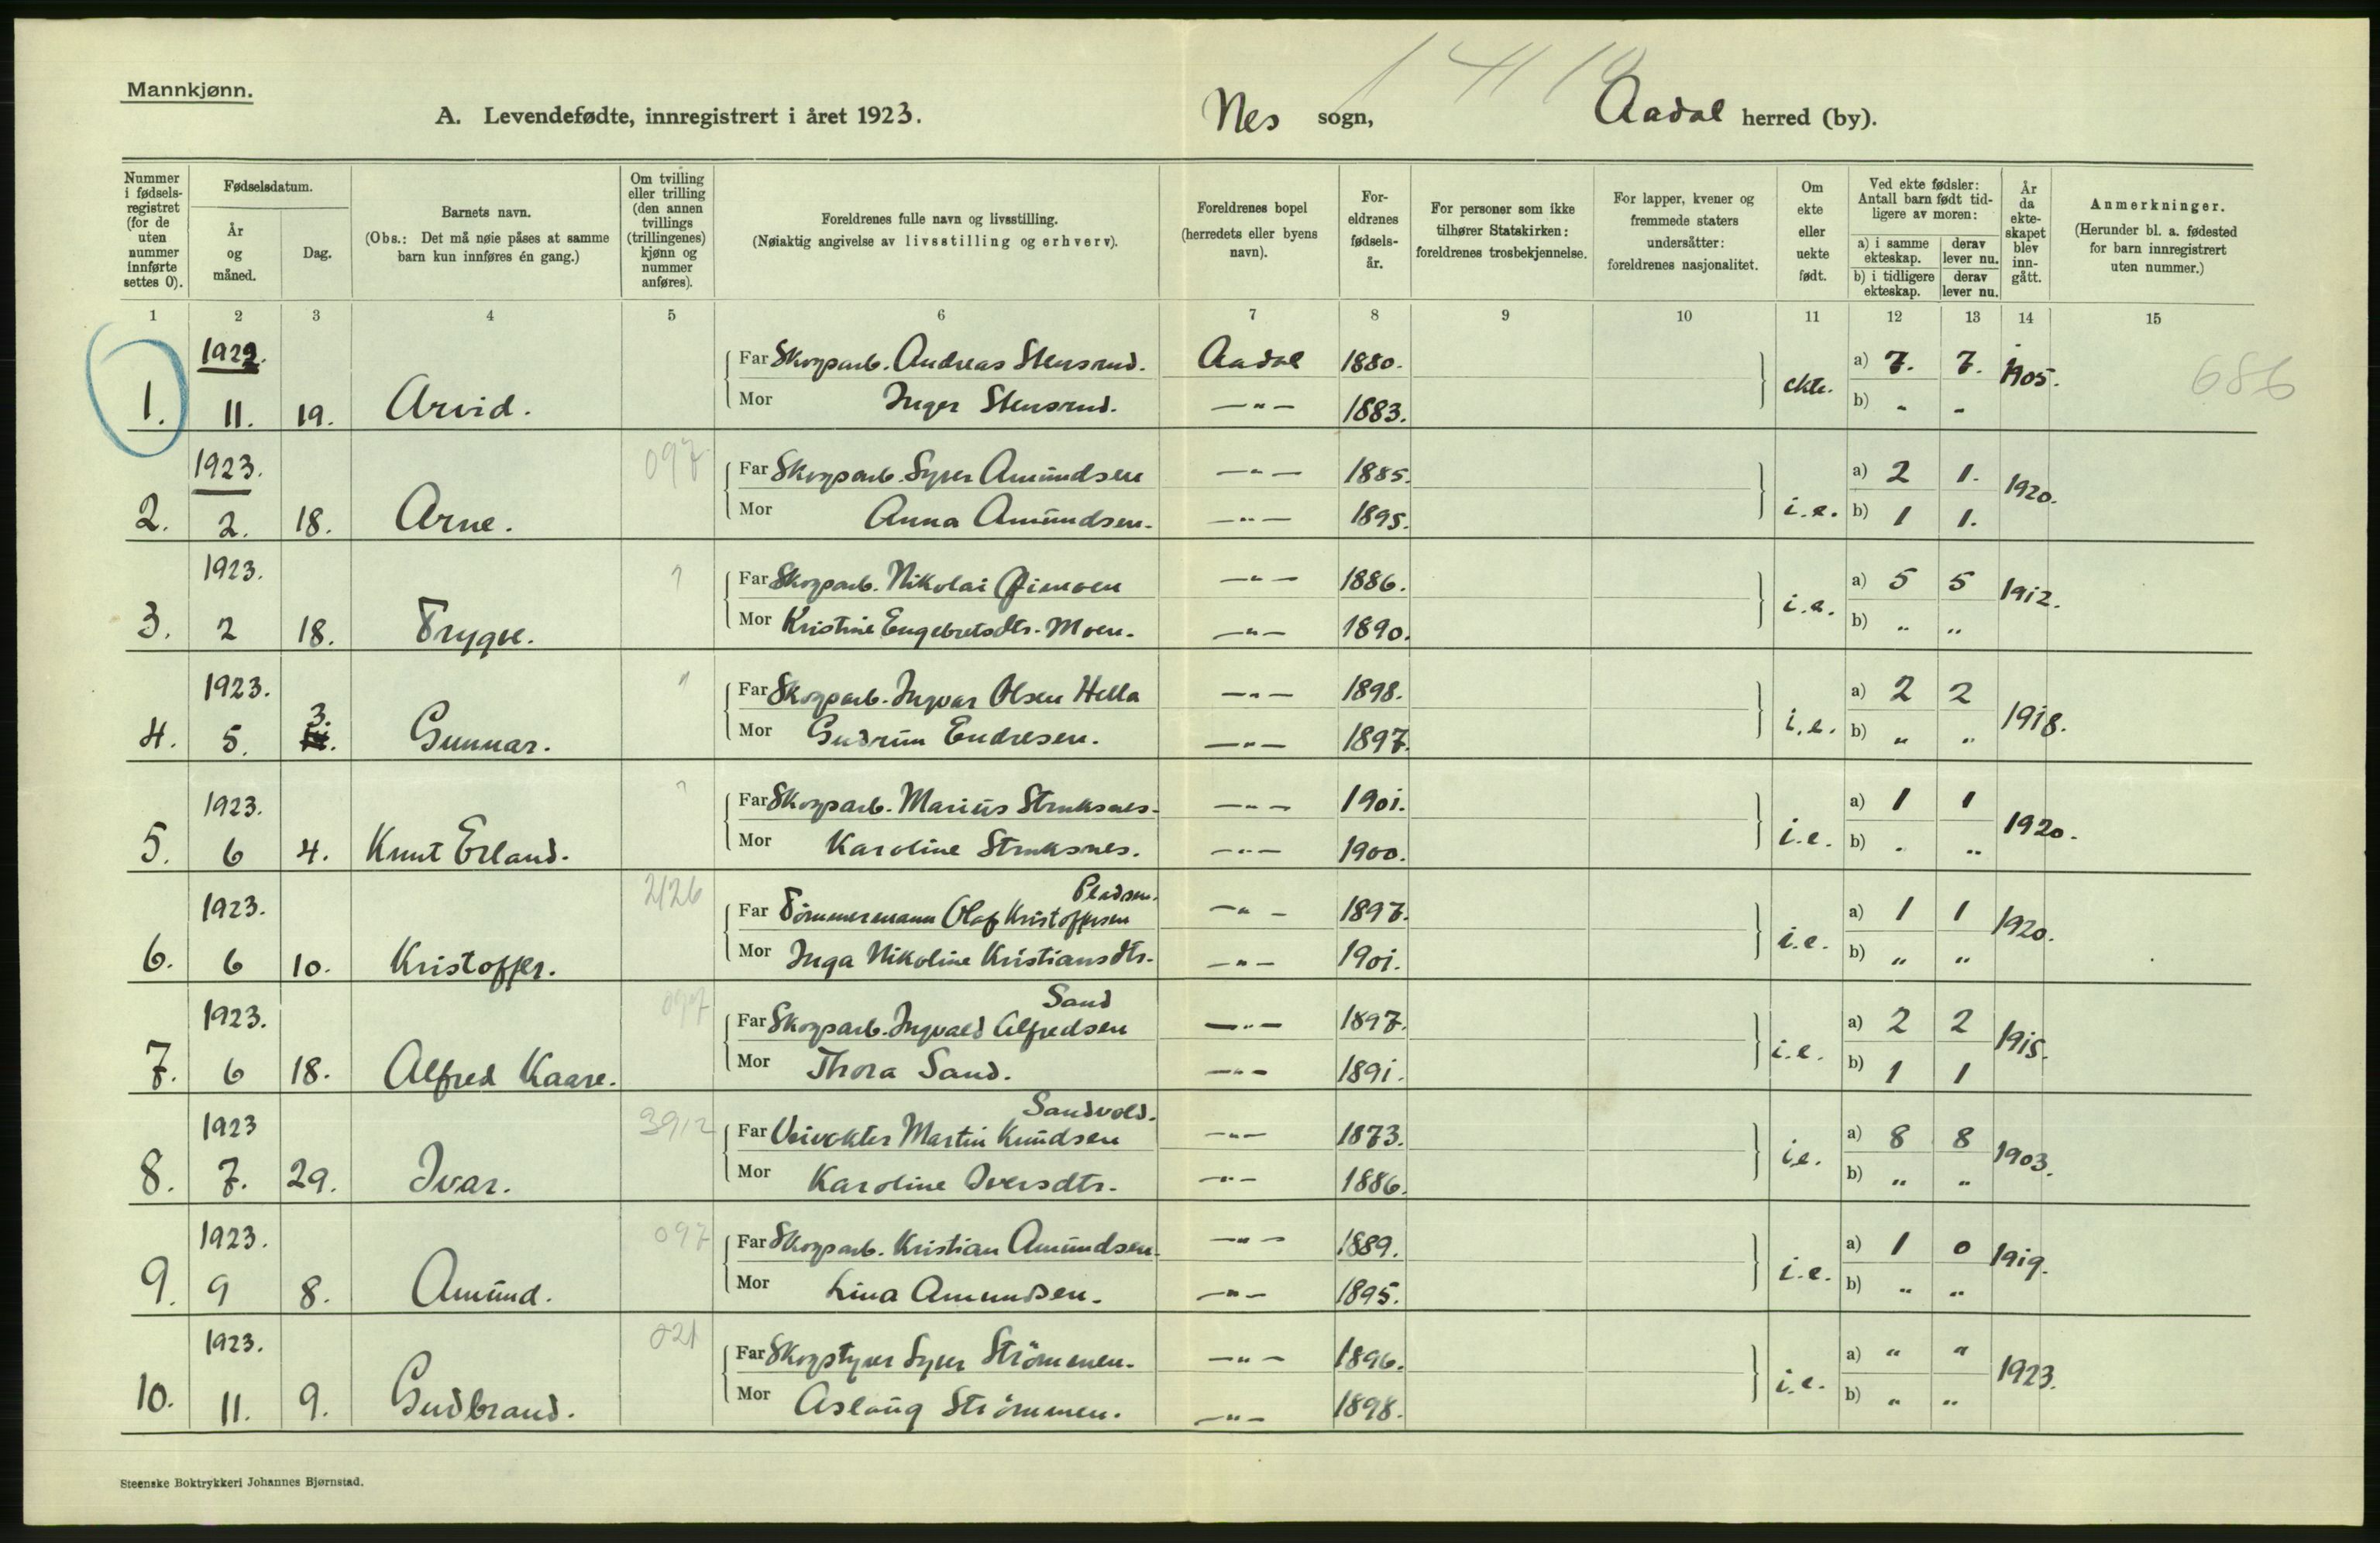 Mannkjønn.
A. Levendefødte, innregistrert i året 1923.
Nes sogn,
Aadal herred (by).
Nummer i fødsels-registret (for de uten nummer innførte settes 0).
Fødselsdatum.
År og måned.
Dag.
Barnets navn.
(Obs.: Det må nøie påses at samme barn kun innføres én gang.)
Om tvilling eller trilling (den annen tvillings (trillingenes) kjønn og nummer anføres).
Foreldrenes fulle navn og livsstilling.
(Nøiaktig angivelse av livsstilling og erhverv).
Foreldrenes bopel (herredets eller byens navn).
For-eldrenes fødsels-år.
For personer som ikke tilhører Statskirken: foreldrenes trosbekjennelse.
For lapper, kvener og fremmede staters undersåtter: foreldrenes nasjonalitet.
Om ekte eller uekte født.
Ved ekte fødsler: Antall barn født tid-ligere av moren:
a) i samme ekteskap. derav lever nu.
b) i tidligere ekteskap. derav lever nu.
År da ekte-skapet blev inn-gått.
Anmerkninger.
(Herunder bl. a. fødested for barn innregistrert uten nummer.)
1 2 3 4 5 6 7 8 9 10 11 12 13 14 15
1922.
Far Skogsarb. Andreas Stensrud. Aadal 1880. a) 7. 7. 1905. 686
1. 11. 19. Arvid. Mor Inger Stensrud. —"— 1883. ekte. b) " "
1923. 097 Far Skogsarb. Syver Amundsen —"— 1885. a) 2 1. 1920.
2. 2. 18. Arne. Mor Anna Amundsen. —"— 1895. i.e. b) 1 1.
1923. Far Skogsarb. Nikolai —"— 1886. a) 5 5 1912.
3. 2 18. Trygve. Mor Kristine Engebretsdtr. Moen. —"— 1890. i.e. b) " "
1923. Far Skogsarb. Ingvar Olsen Hella —"— 1898. a) 2 2 1918.
4. 5. 3. Gunnar. Mor Gudrun Endresen. —"— 1897. i.e. b) " "
1923. Far Skogsarb. Marius Struksnes. —"— 1901. a) 1 1 1920.
5. 6 4. Knut Erland. Mor Karoline Struksnes. —"— 1900. i.e. b) " "
1923. 2126 Far Tömmermann Olaf Kristoffersen Pladsen. —"— 1897. a) 1 1 1920.
6. 6 10. Kristoffer. Mor Inga Nikoline Kristiansdtr. —"— 1901. i.e. b) " "
1923. 097 Far Skogsarb. Ingvald Alfredsen Sand —"— 1897. a) 2 2 1915.
7. 6 18. Alfred Kaare. Mor Thora Sand. —"— 1891. i.e. b) 1 1
1923 3912 Far Veivokter Martin Knudsen Sandvold. —"— 1873. a) 8 8 1903.
8. 7. 29. Ivar. Mor Karoline Iversdtr. —"— 1886. i.e. b) " "
1923. 097 Far Skogsarb. Kristian Amundsen. —"— 1889. a) 1 0 1919.
9. 9 8. Amund. Mor Lina Amundsen. —"— 1895. i.e. b) " "
1923. 021 Far Skogstyrer Syver Strömmen. —"— 1896. a) " " 1923.
10. 11. 9. Gudbrand. Mor Aslaug Strömmen. —"— 1898. i.e. b) " "
Steenske Boktrykkeri Johannes Bjørnstad.